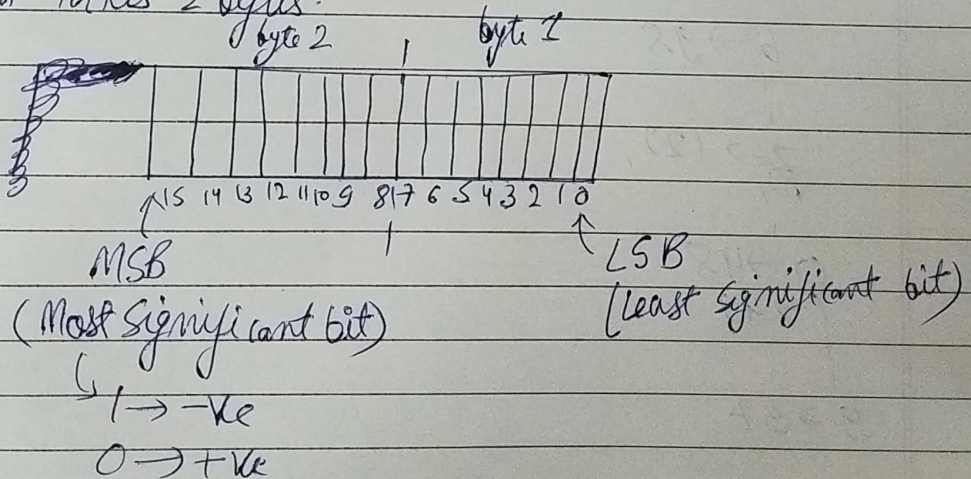 takes 2 bytes.
byte 2 | byte 1
15 14 13 12 11 10 9 8 | 7 6 5 4 3 2 1 0
MSB
(Most significant bit)
LSB
(Least significant bit)
1 → -ve
0 → +ve